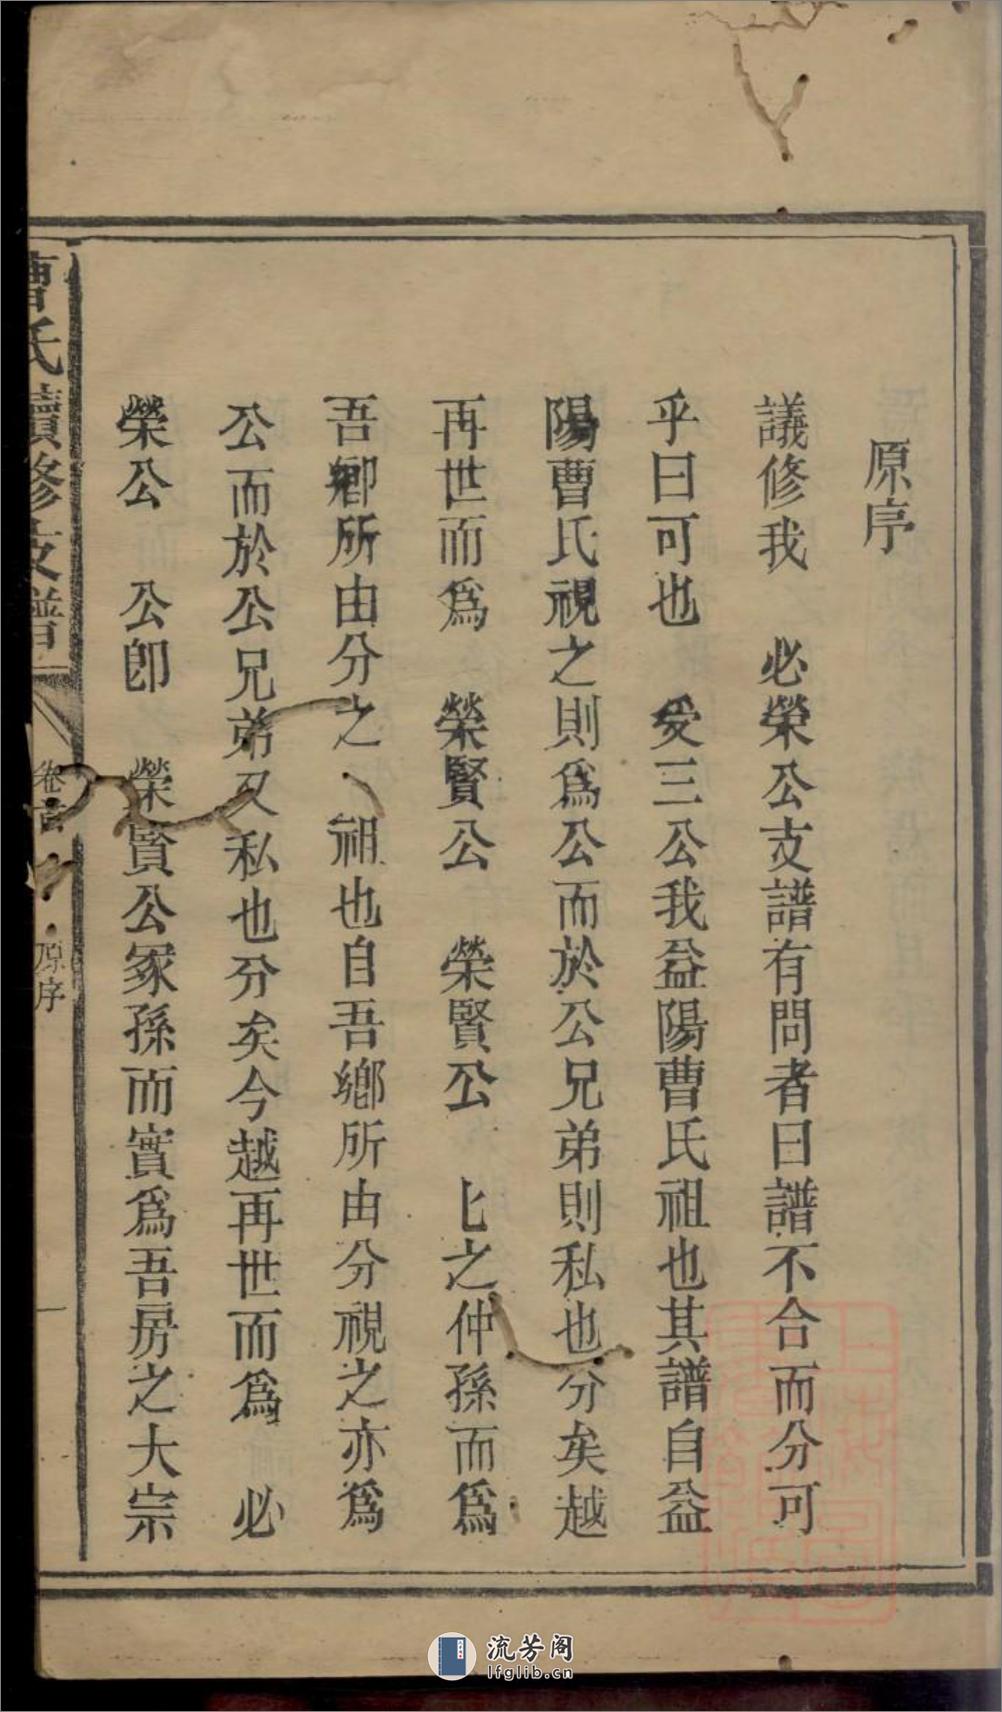 原序
議修我　必榮公支譜有問者曰譜不合而分可
乎曰可也　受三公我益陽曹氏祖也其譜自益
陽曹氏視之則爲公而於公兄弟則私也分矣越
再世而爲　榮賢公　榮賢公　上之仲孫而爲
吾鄉所由分之　祖也自吾鄉所由分視之亦爲
公而於公兄弟又私也分矣今越再世而爲　必
榮公　公卽　榮賢公冢孫而實爲吾房之大宗
曹氏續修支譜
卷首
原序
一
流芳阁
lfglib.cn